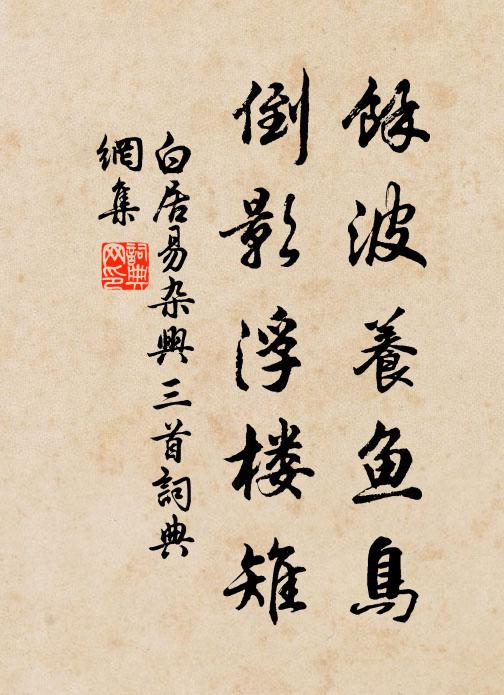 餘波養魚鳥
倒影浮楼雉
白居易杂興三首詞典
網集
詞典网印